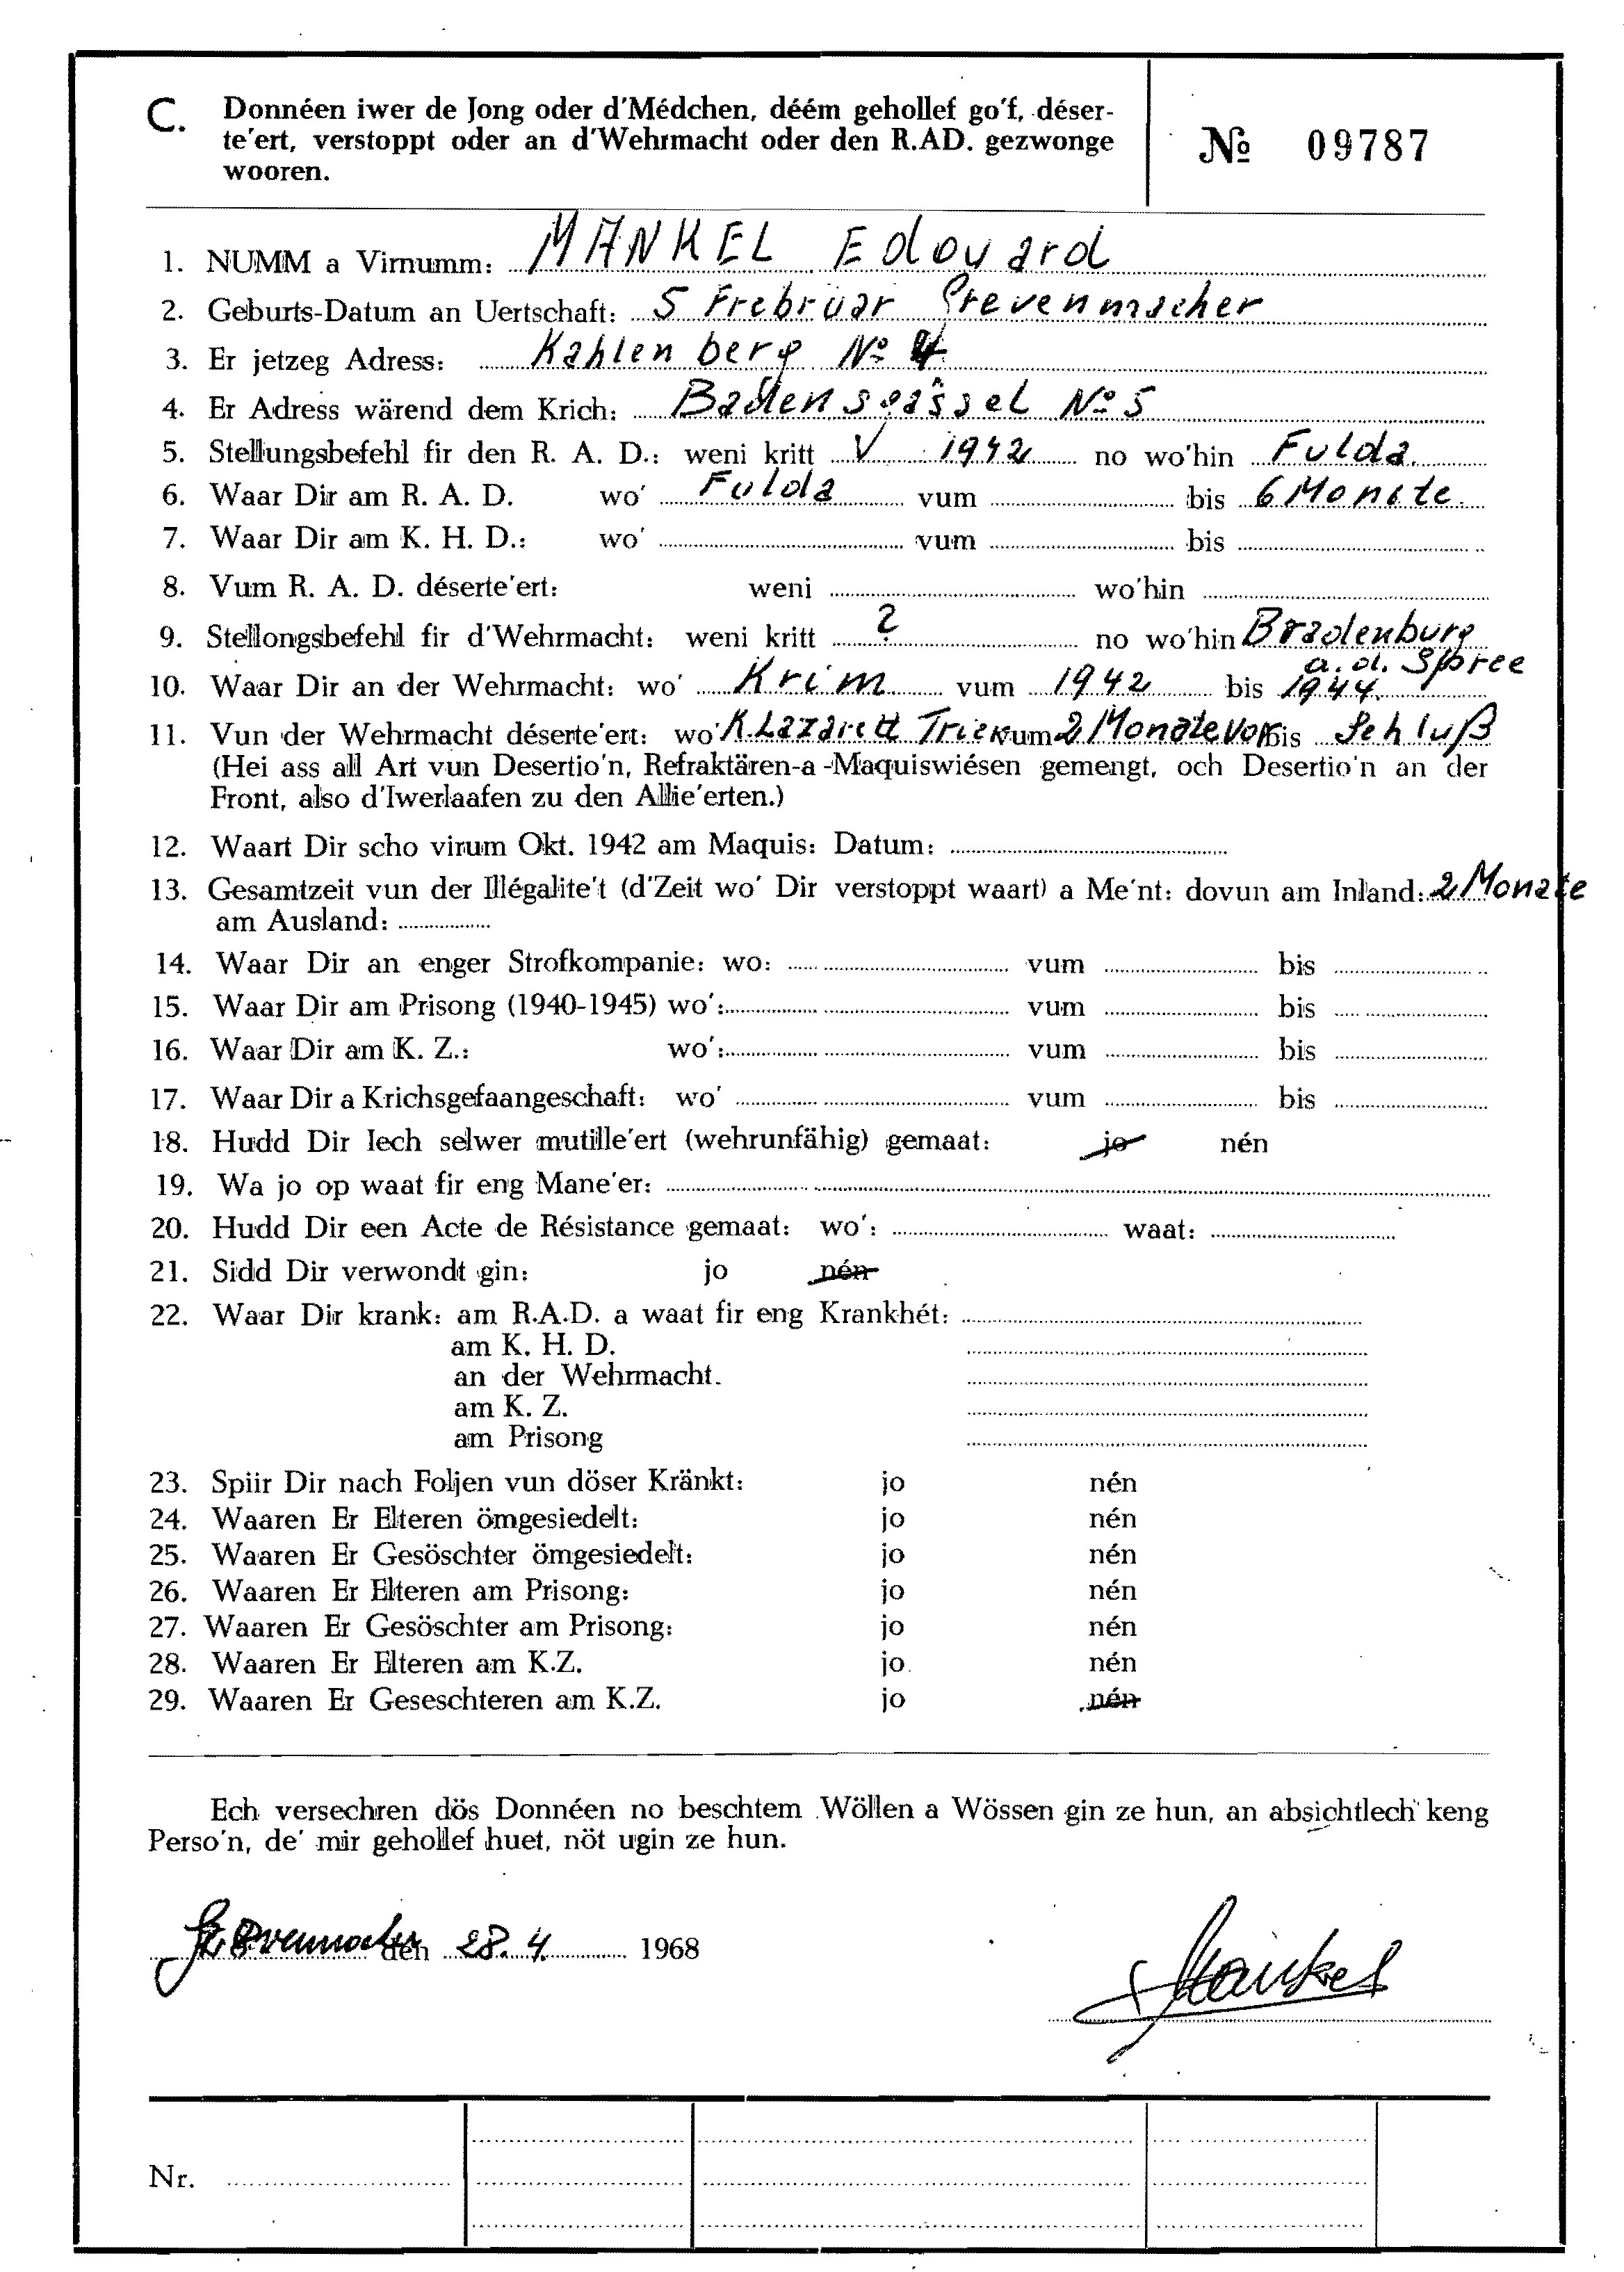 C. Donnéen iwer de Jong oder d'Médchen, déém gehollef go'f, déser-
te'ert, verstoppt oder an d'Wehrmacht oder den R.AD. gezwonge
wooren.
№ 09787
1. NUMM a Virnumm: MANKEL Edouard
2. Geburts-Datum an Uertschaft: 5 Frebruar Grevenmacher
3. Er jetzeg Adress: Kahlenberg No 4
4. Er Adress wärend dem Krich: No 5
5. Stellungsbefehl fir den R. A. D.: weni kritt V 1942 no wo'hin Fulda
6. Waar Dir am R. A. D. wo' Fulda vum bis 6 Monate.
7. Waar Dir am K. H. D.: wo' vum bis
8. Vum R. A. D. déserte'ert: weni wo'hin
9. Stellongsbefehl fir d'Wehrmacht: weni kritt ? no wo'hin Bradenburg
a. d. Spree
10. Waar Dir an der Wehrmacht: wo' Krim vum 1942 bis 1944.
11. Vun der Wehrmacht déserte'ert: wo' K.Lazarett Trier vum 2 Monate vor bis Schluß
(Hei ass all Art vun Desertio'n, Refraktären-a-Maquiswiésen gemengt, och Desertio'n an der
Front, also d'Iwerlaafen zu den Allie'erten.)
12. Waart Dir scho virum Okt. 1942 am Maquis: Datum:
13. Gesamtzeit vun der Illégalite't (d'Zeit wo' Dir verstoppt waart) a Me'nt: dovun am Inland: 2 Monate
am Ausland:
14. Waar Dir an enger Strofkompanie: wo: vum bis
15. Waar Dir am Prisong (1940-1945) wo': vum bis
16. Waar Dir am K. Z.: wo': vum bis
17. Waar Dir a Krichsgefaangeschaft: wo' vum bis
18. Hudd Dir Iech selwer mutille'ert (wehrunfähig) gemaat: jo nén
19. Wa jo op waat fir eng Mane'er:
20. Hudd Dir een Acte de Résistance gemaat: wo': waat:
21. Sidd Dir verwondt gin: jo nén
22. Waar Dir krank: am R.A.D. a waat fir eng Krankhét:
am K. H. D.
an der Wehrmacht.
am K. Z.
am Prisong
23. Spiir Dir nach Foljen vun döser Kränkt: jo nén
24. Waaren Er Elteren ömgesiedelt: jo nén
25. Waaren Er Gesöschter ömgesiedelt: jo nén
26. Waaren Er Elteren am Prisong: jo nén
27. Waaren Er Gesöschter am Prisong: jo nén
28. Waaren Er Elteren am K.Z. jo nén
29. Waaren Er Geseschteren am K.Z. jo nén
Ech versechren dös Donnéen no beschtem Wöllen a Wössen gin ze hun, an absichtlech keng
Perso'n, de' mir gehollef huet, nöt ugin ze hun.
Grevenmacher den 28. 4. 1968
Mankel
Nr.